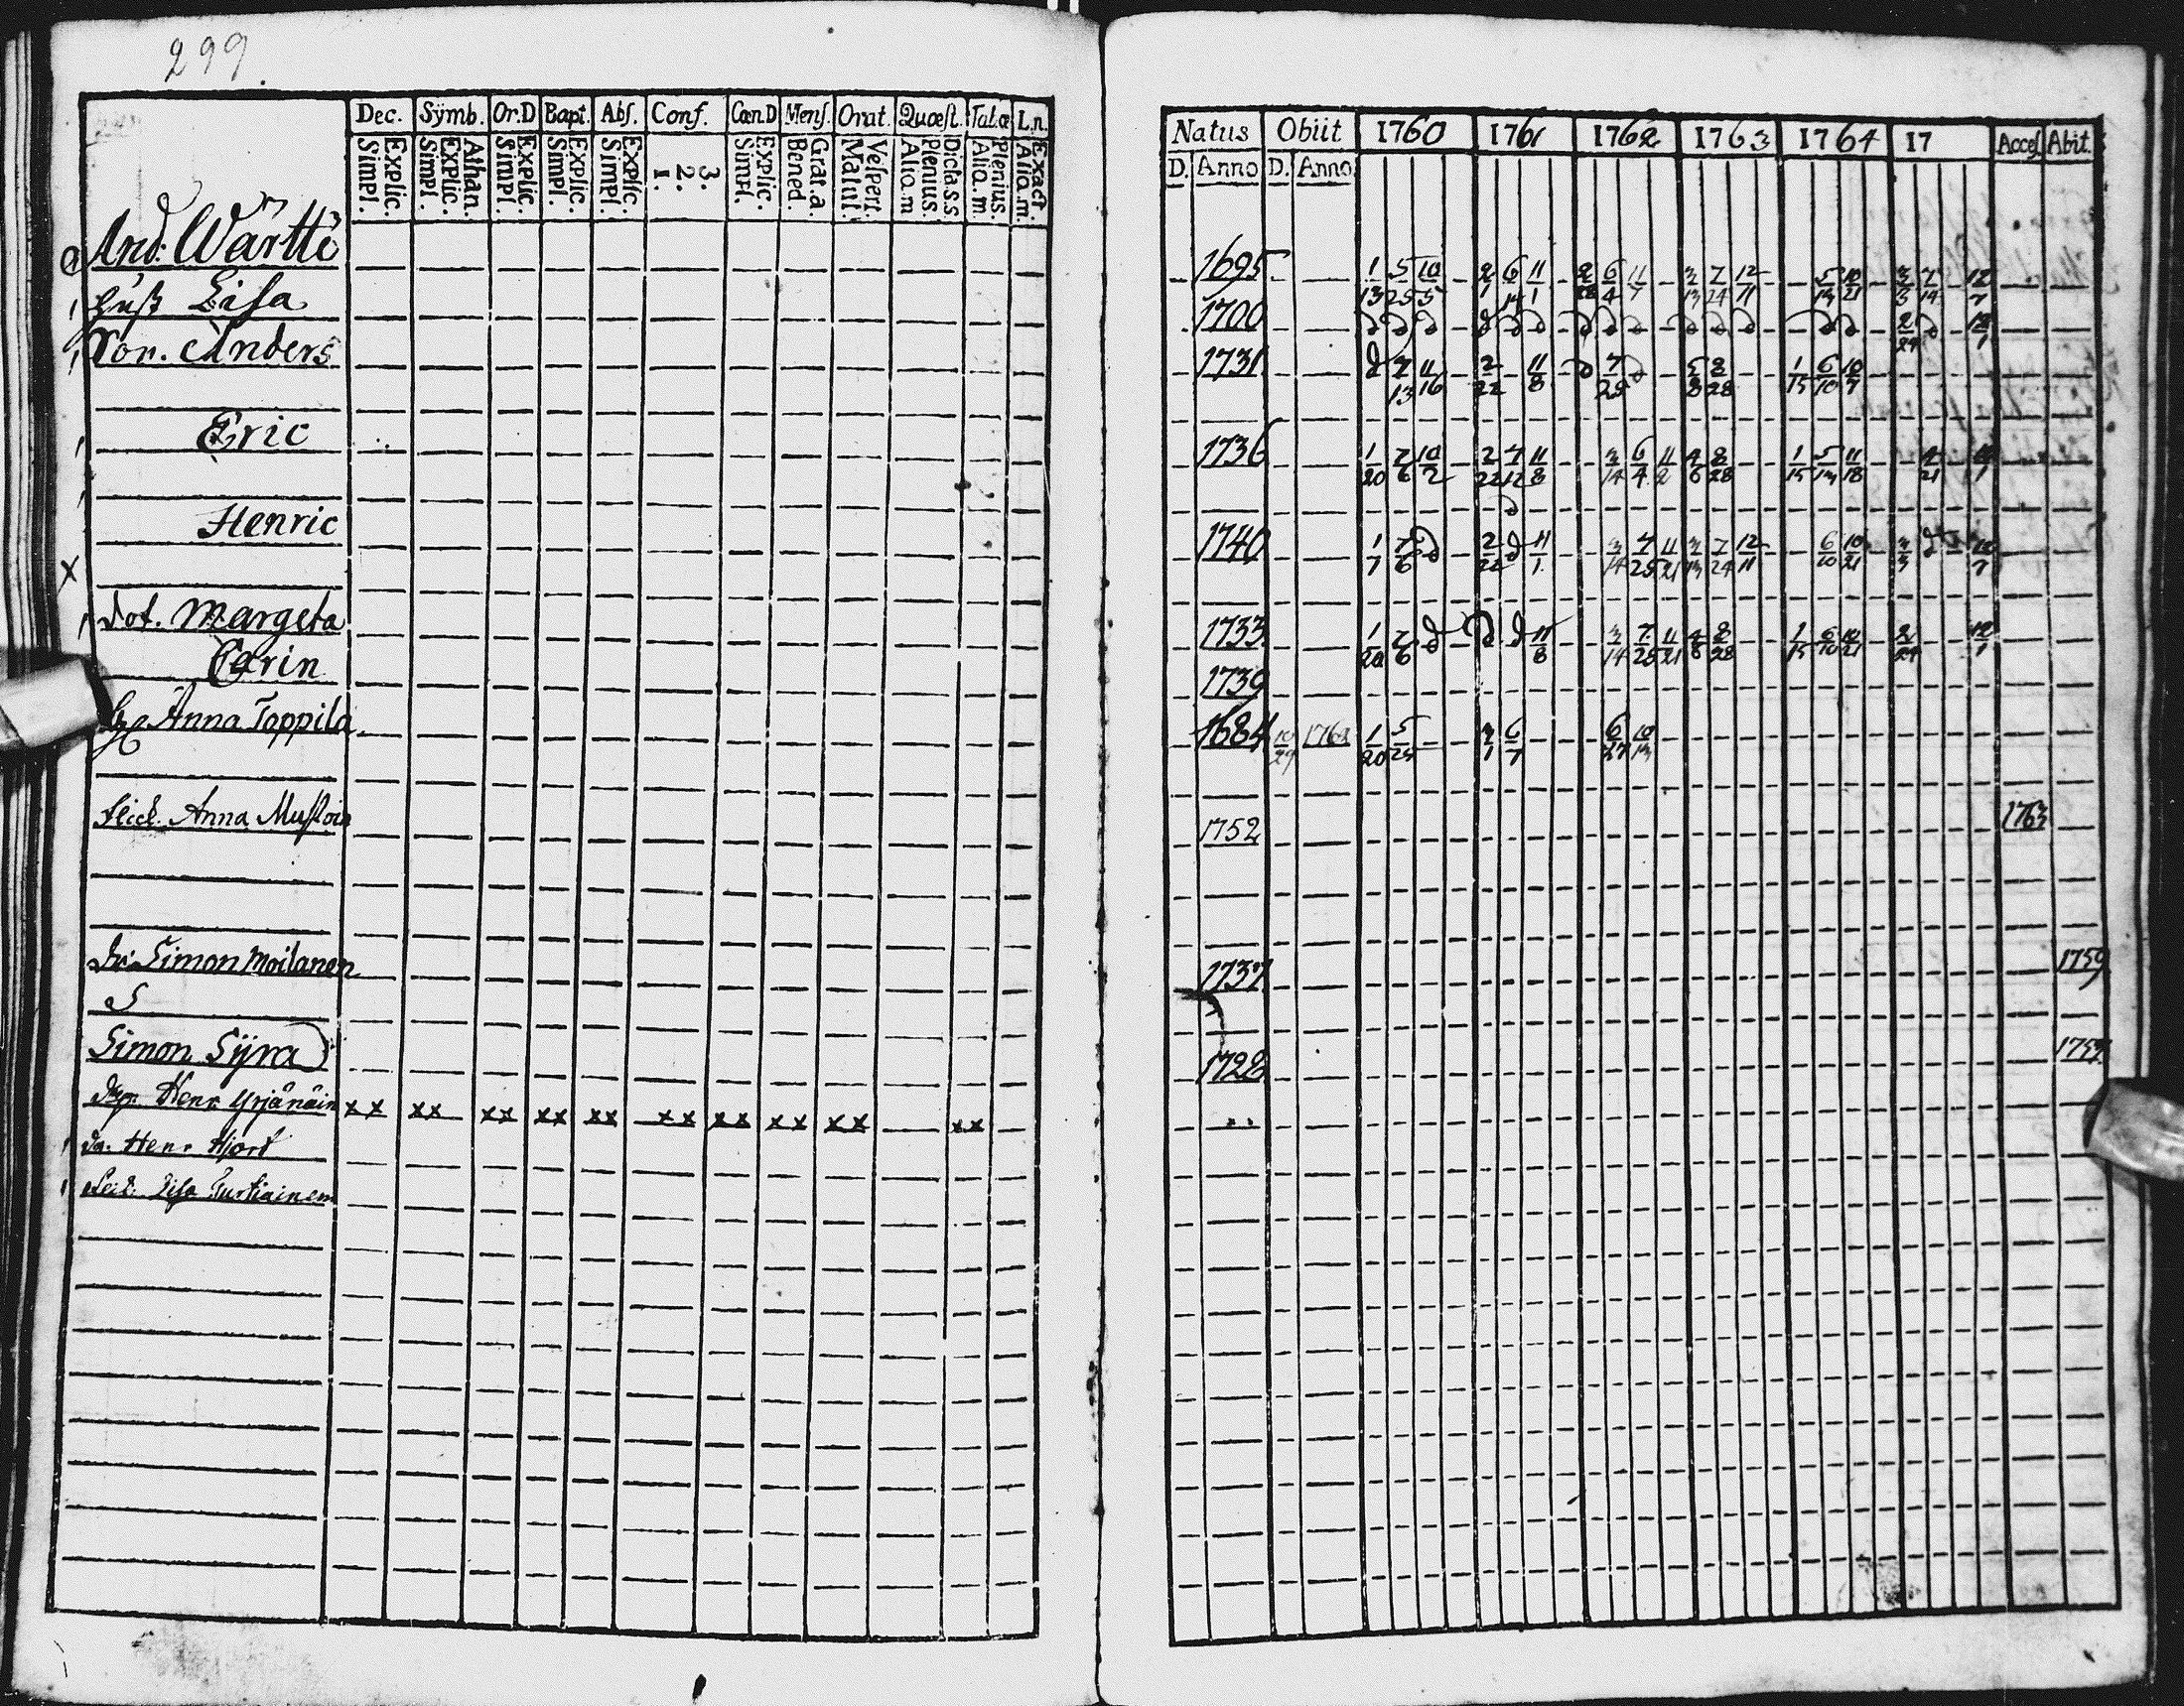 299.
Dec. Sÿmb. Or.D Bapt. Abſ. Conf. Cœn.D Menſ. Orat. Quæſt. Tab.œ L.n.
Simpl. Explic. Simpl. Explic. Athan. Simpl. Explic. Simpl. Explic. Simpl. Explic. 1. 2. 3. Simpl. Explic. Bened. Grat.a. Matut. Veſpert. Alio.m Plenius. Dicta.s.s. Alio.m. Plenius. Alio.m. Exact.
And: Wärtti
huſt. Liſa
Son. Anders
Eric
Henric
dot. Margeta
Carin
Anna Toppila
flick. Anna Muſtoin
dr. Simon Moilanen
S
Simon Sÿrra
Henr. Yrjänäin xx xx xx xx xx xx xx xx xx xx
dr. Henr Hjort
Liſa Turtiainem
Natus Obiit 1760 1761 1762 1763 1764 17 Acceſ. Abit.
D. Anno D. Anno
1695 1/13 5/25 10/5 2/1 6/14 11/1 2/28 6/4 11/7 3/13 7/24 12/11 5/13 10/21 3/3 7/14 12/7
1700 2/24 12/1
1731 7/13 11/16 2/22 11/8 7/25 5/8 8/28 1/15 6/10 10/7
1736 1/20 7/6 10/2 2/22 7/12 11/8 3/14 6/4 11/2 4/6 8/28 1/15 5/13 11/18 4/21
1740 1/7 7/6 2/22 11/1. 3/14 7/25 11/21 3/13 7/24 12/11 6/10 10/21 3/3
1733 1/20 7/6 11/8 3/14 7/25 11/21 4/6 8/28 1/15 6/10 10/21 2/24 12/1
1739
1684 10/29 1762 1/20 5/25 3/1 6/7 6/27 10/13
1752 1763
1737 1759
1728 1759